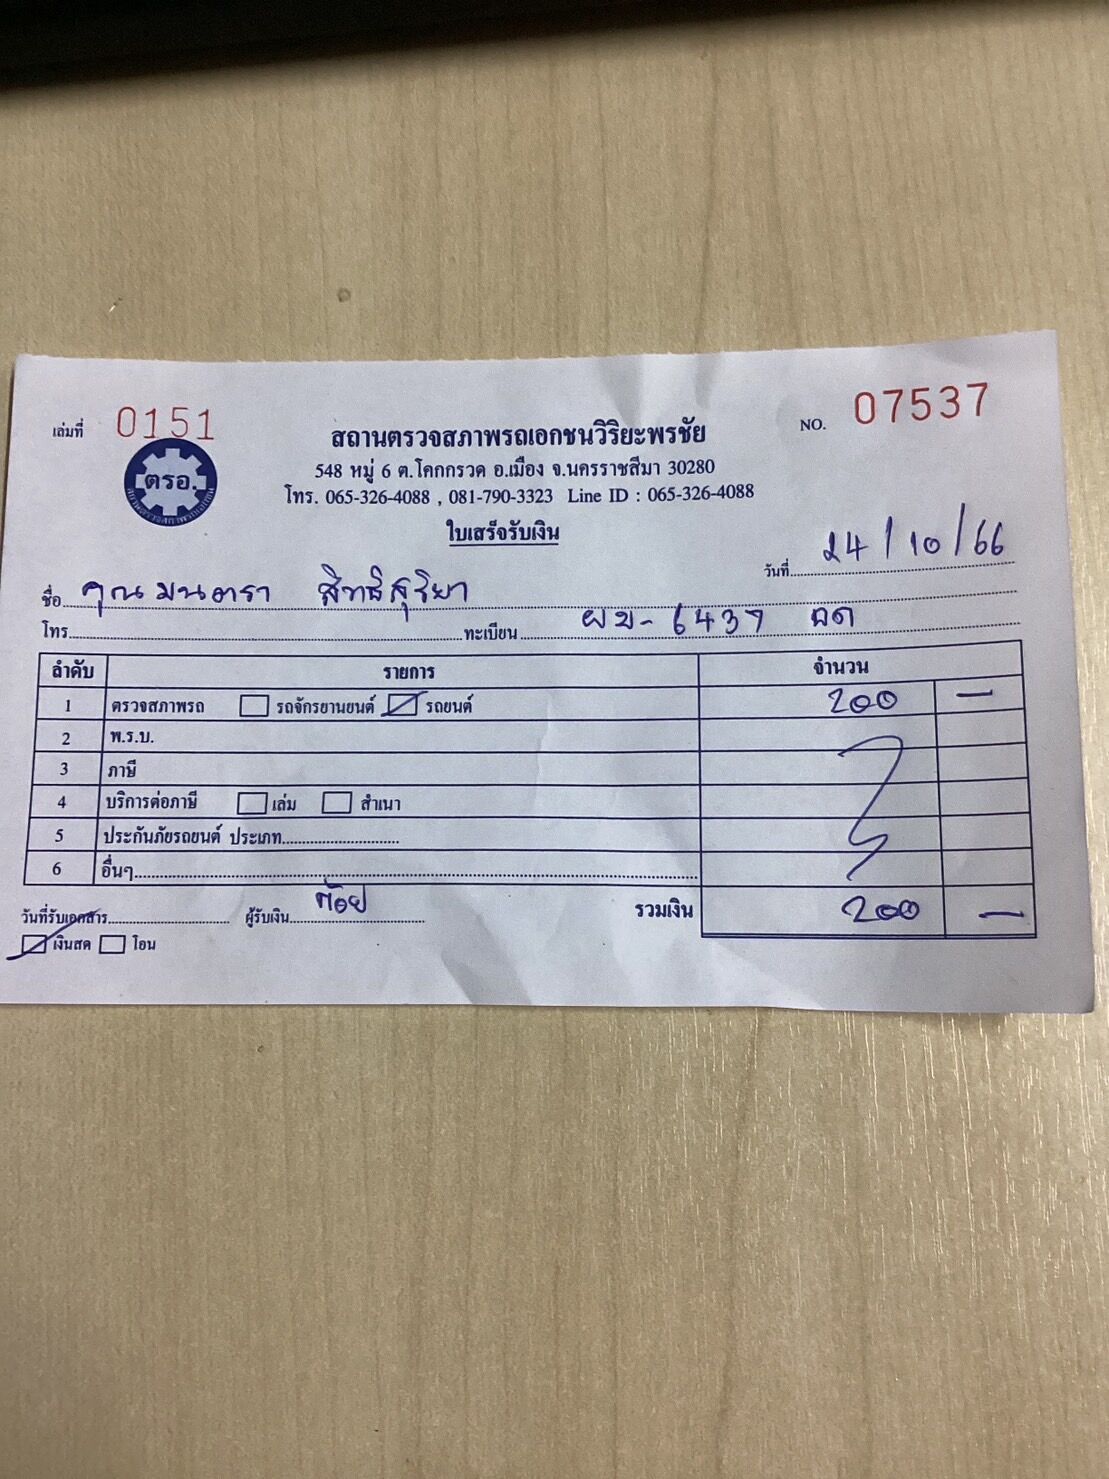 เล่มที่ 0151
NO. 07537
ตรอ.
สถานตรวจสภาพรถเอกชนวิริยะพรชัย
548 หมู่ 6 ต.โคกกรวด อ.เมือง จ.นครราชสีมา 30280
โทร. 065-326-4088 , 081-790-3323 Line ID : 065-326-4088
ใบเสร็จรับเงิน
วันที่ 24/10/66
ชื่อ คุณมนตารา สิทธิสุริยา
โทร. ทะเบียน ผข-6437
ลำดับ รายการ จำนวน
1 ตรวจสภาพรถ รถจักรยานยนต์ รถยนต์ 200 —
2 พ.ร.บ.
3 ภาษี
4 บริการต่อภาษี เล่ม สำเนา
5 ประกันภัยรถยนต์ ประเภท
6 อื่นๆ
วันที่รับเอกสาร ผู้รับเงิน ต้อย รวมเงิน 200 —
เงินสด โอน